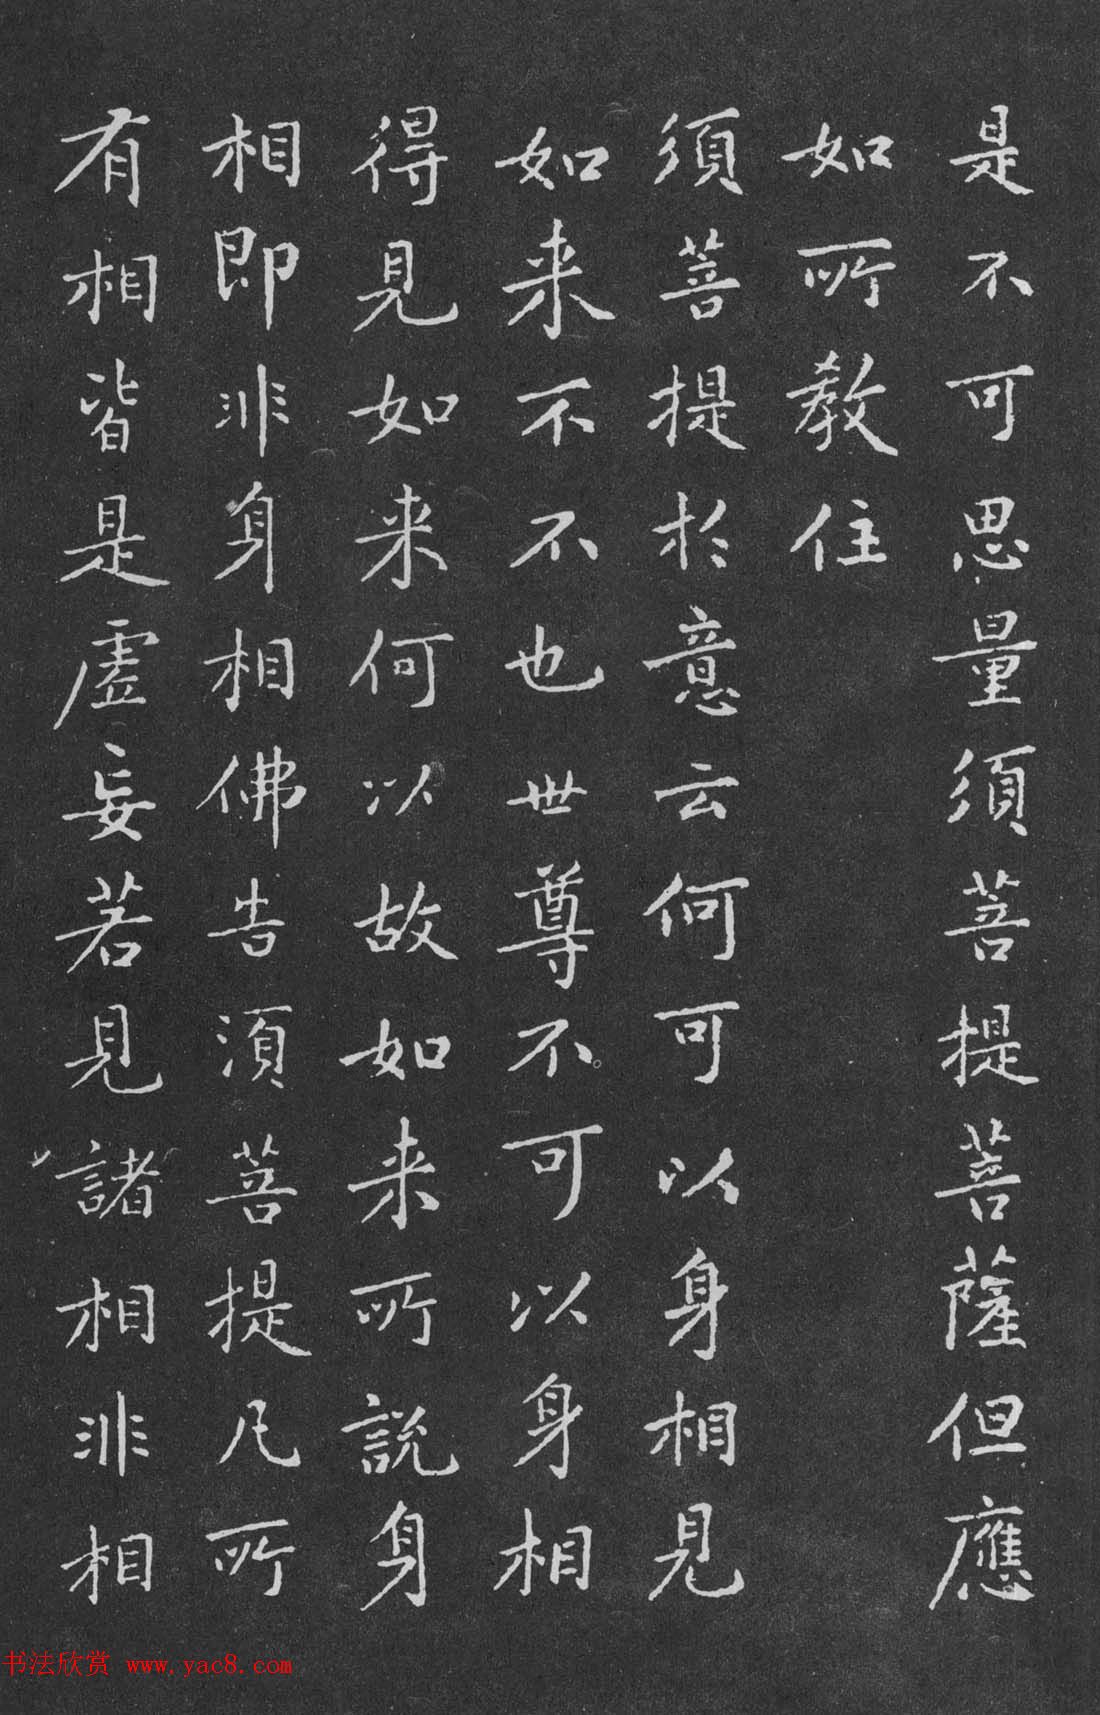 是不可思量須菩提菩薩但應
如所教住
須菩提於意云何可以身相見
如来不不也世尊不可以身相
得見如来何以故如来所說身
相即非身相佛告須菩提凡所
有相皆是虛妄若見諸相非相
书法欣赏 www.yac8.com